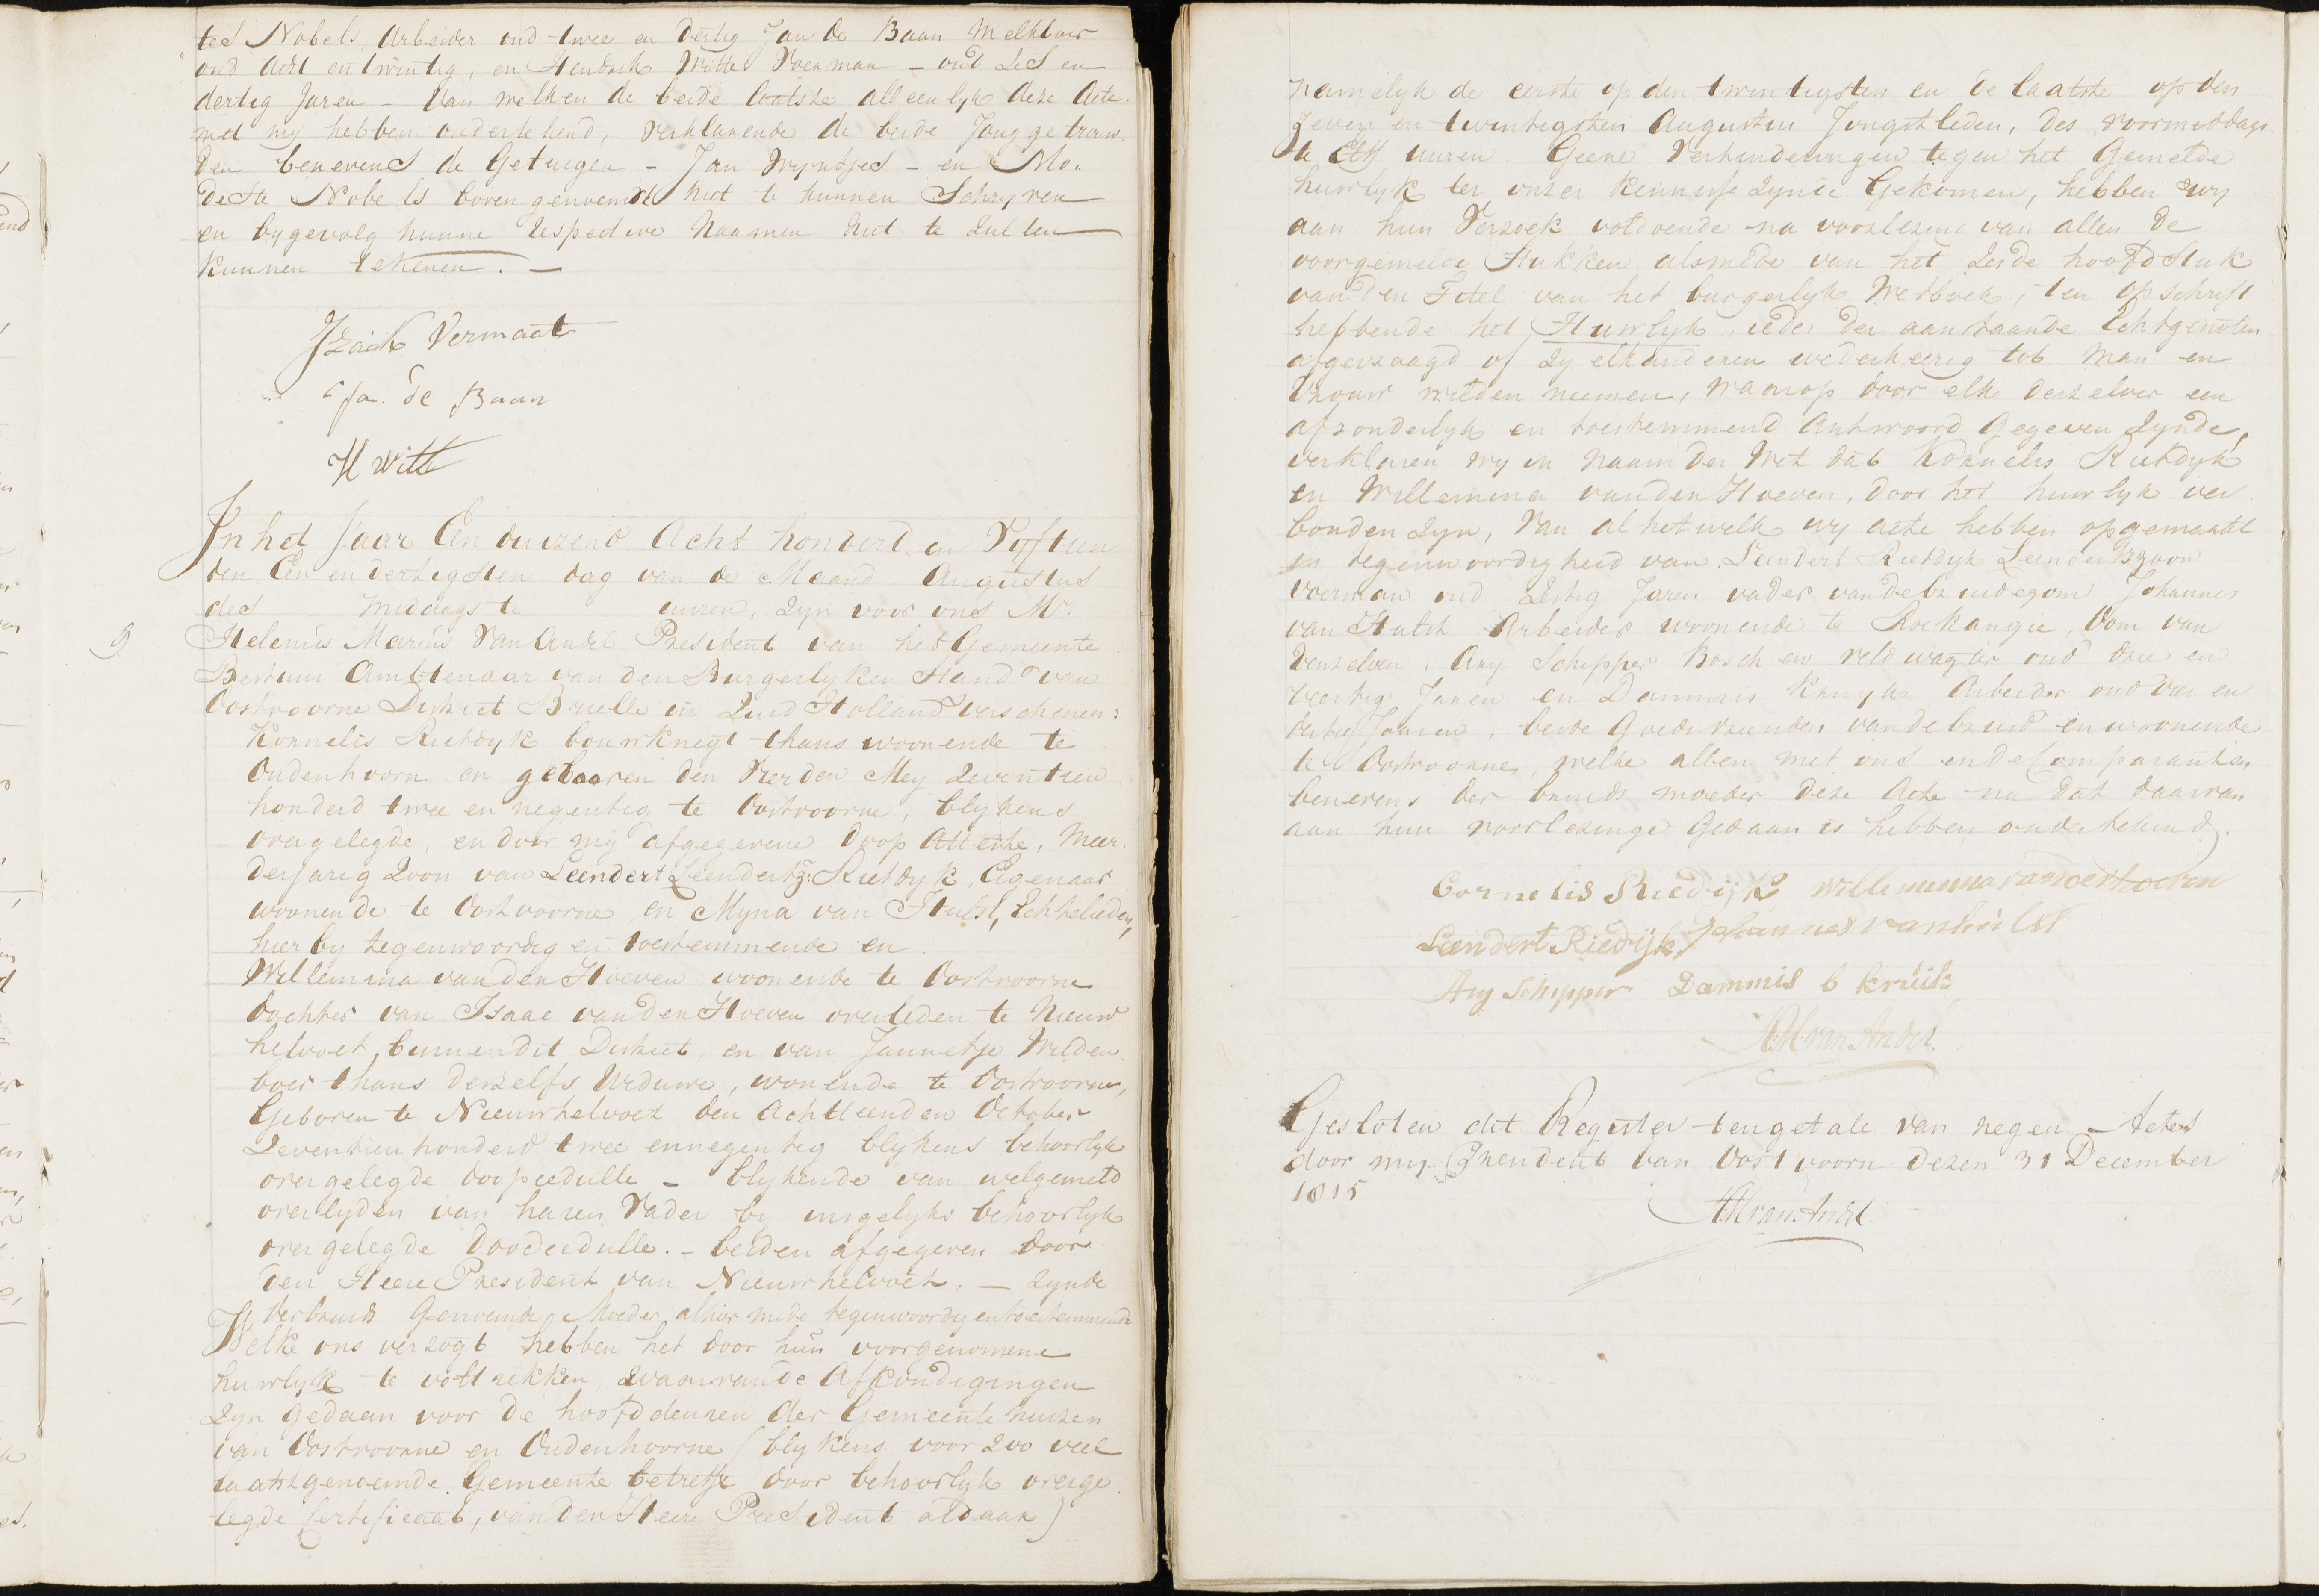 tes Nobels, Arbeider oud twee en dertig Jan de Baan Melkboer
oud Acht en twintig, en Hendrik Witte Voerman – oud Zes en
dertig Jaren – Van welken de beide laatste alleenlyk deze Acte
met my hebben ondertekend, Verklarende de beide Jong getrouw
den benevens de Getuigen – Jan Wyntjes – en Mo„
deste Nobels boven genoemd niet te kunnen Schryven
en bygevolg hunne respective Naamen niet te zullen
kunnen tekenen. –
Izaak Vermaat
Ja. de Baan
H Witte
In het Jaar Een duizend Acht honderd en Vyftien
den Een en dertigsten dag van de Maand Augustus
des middags te uuren, zyn voor ons Mr.
9
Helenius Marius Van Andel President van het Gemeente
Bestuur Ambtenaar van den Burgerlyken Stand van
Oostvoorne District Brielle in Zuid Holland verschenen:
Kornelis Rietdyk bouwknegt thans woonende te
Oudenhoorn en gebooren den Vierden Mey Zeventien
honderd twee en negentig te Oostvoorne, blykens
overgelegde, en door my afgegevene Doop Atteste, Meer
derjarig Zoon van Leendert Leendertz: Rietdyk, Eigenaar
woonende te Oostvoorne en Myna van Hulst, Echtelieden,
hier by tegenwoordig en toestemmende en
Willemina van den Hoeven woonende te Oostvoorne
dochter van Isaac van den Hoeven overleden te Nieuw
helvoet, binnen dit District en van Jannetje Wilden
boer thans deszelfs Weduwe, wonende te Oostvoorne,
Geboren te Nieuwhelvoet den Achttienden October
Zeventien honderd twee ennegentig blykens behoorlyk
overgelegde doopcedulle – blykende van welgemeld
overlyden van haren Vader by insgelyks behoorlyk
overgelegde doodcedulle. – beiden afgegeven door
den Heere President van Nieuwhelvoet. – Zynde
der bruids Genoemde Moeder alhier mede tegenwoordig en toestemmende
Welke ons verzogt hebben het door hun voorgenomene
huwlyk te voltrekken, waarvan de Afkondigingen
Zyn gedaan voor de hoofddeuren der Gemeente huizen
van Oostvoorne en Oudenhoorne (blykens voor zoo veel
laatstgenoemde Gemeente betreft door behoorlyk overge
legde Certificaat, van den Heere President aldaar)
namelyk de eerste op den twintigsten en de laatste op den
zeven en twintigsten Augustus Jongstleden, des voormiddags
te Elf uuren. Geene Verhinderingen tegen het Gemelde
huwlyk ter onzer kennisse zynde Gekomen, hebben wy
aan hun Verzoek voldoende na voorlezing van allen de
voorgemelde Stukken alsmede van het Zesde hoofdstuk
van den Titel van het burgerlyk Wetboek, ten opschrift
hebbende het Huwlyk, ieder der aanstaande Echtgenoten
afgevraagd of zy elkanderen wederkeerig tot Man en
Vrouw wilden neemen, waarop door elk derzelver een
afzonderlyk en toestemmend Antwoord gegeven zynde,
verklaren wy in Naam der Wet dat Kornelis Rietdyk
en Willemina van den Hoeven, door het huwlyk ver
bonden zyn, Van al hetwelk wy acte hebben opgemaakt
in tegenwoordigheid van Leendert Rietdyk Leendertszoon
voerman oud zestig Jaren vader van de bruidegom Johannes
van Hulst Arbeider woonende te Rockangie, Oom van
denzelven, Ary Schipper Bosch en veldwagter oud drie en
veertig Jaren en Dammis Kruyk Arbeider oud vier en
dertig Jaaren, beide goede vrienden van de bruid en woonende
te Oostvoorne, welke allen met ons en de Comparanten
benevens der bruids moeder deze Acte na dat daarvan
aan hun voorlezinge Gedaan is hebben ondertekend.
Cornelis Riedijk Willemina van der Hoeven
Leendert Riedijk Johannes van hulst
Ary Schipper Dammis b kruik
HMvan Andel.
Gesloten dit Register ten getale van negen Actes
door my President van Oostvoorn dezen 31 December
1815
HMvan Andel